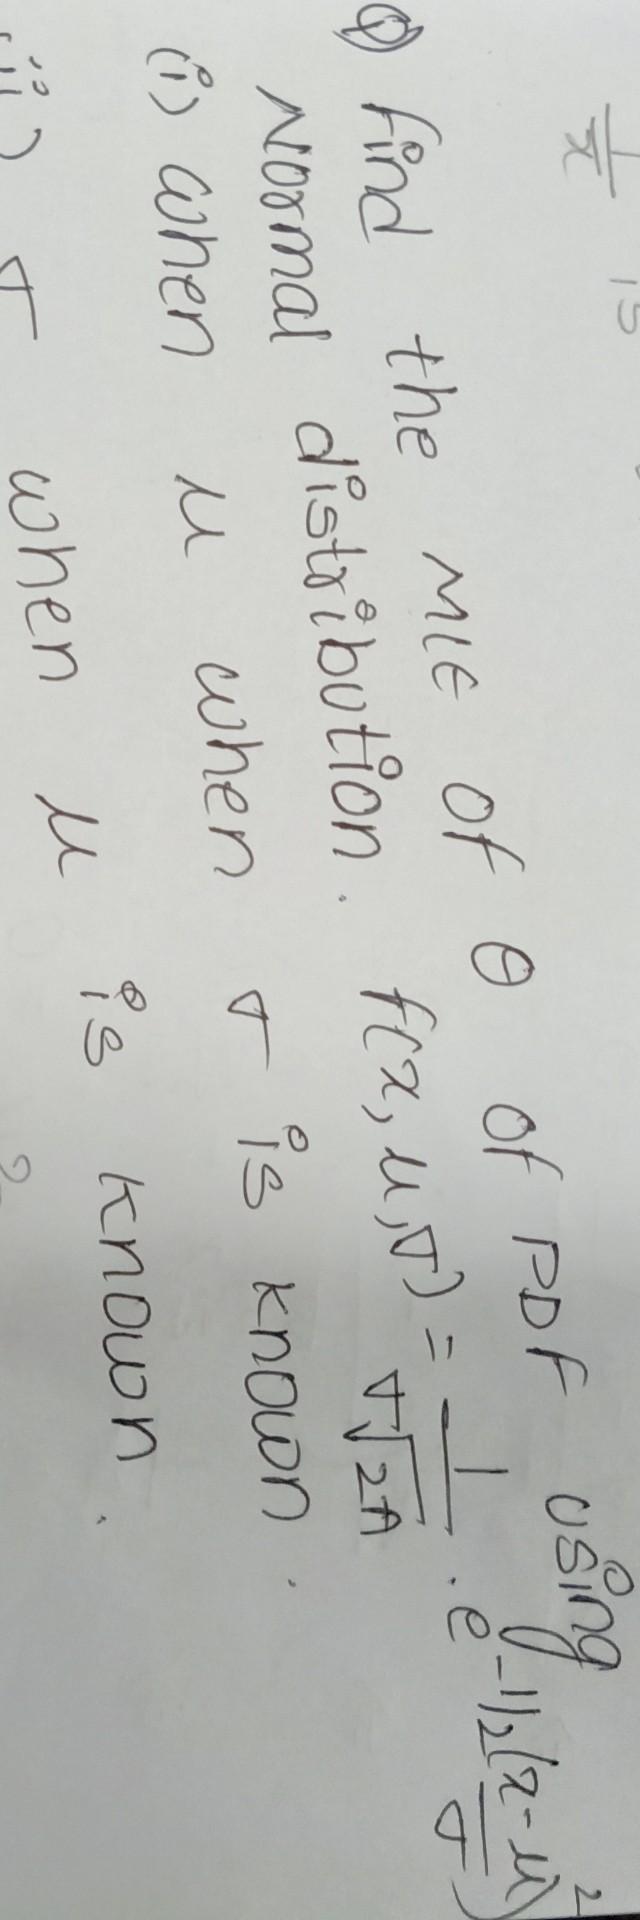 1/x is
Q) find the MLE of θ of PDF using
Normal distribution. f(x, μ, σ) = 1/σ√2π . e^-1/2(x-μ/σ)^2
(i) when μ when σ is known.
(ii) σ when μ is known.